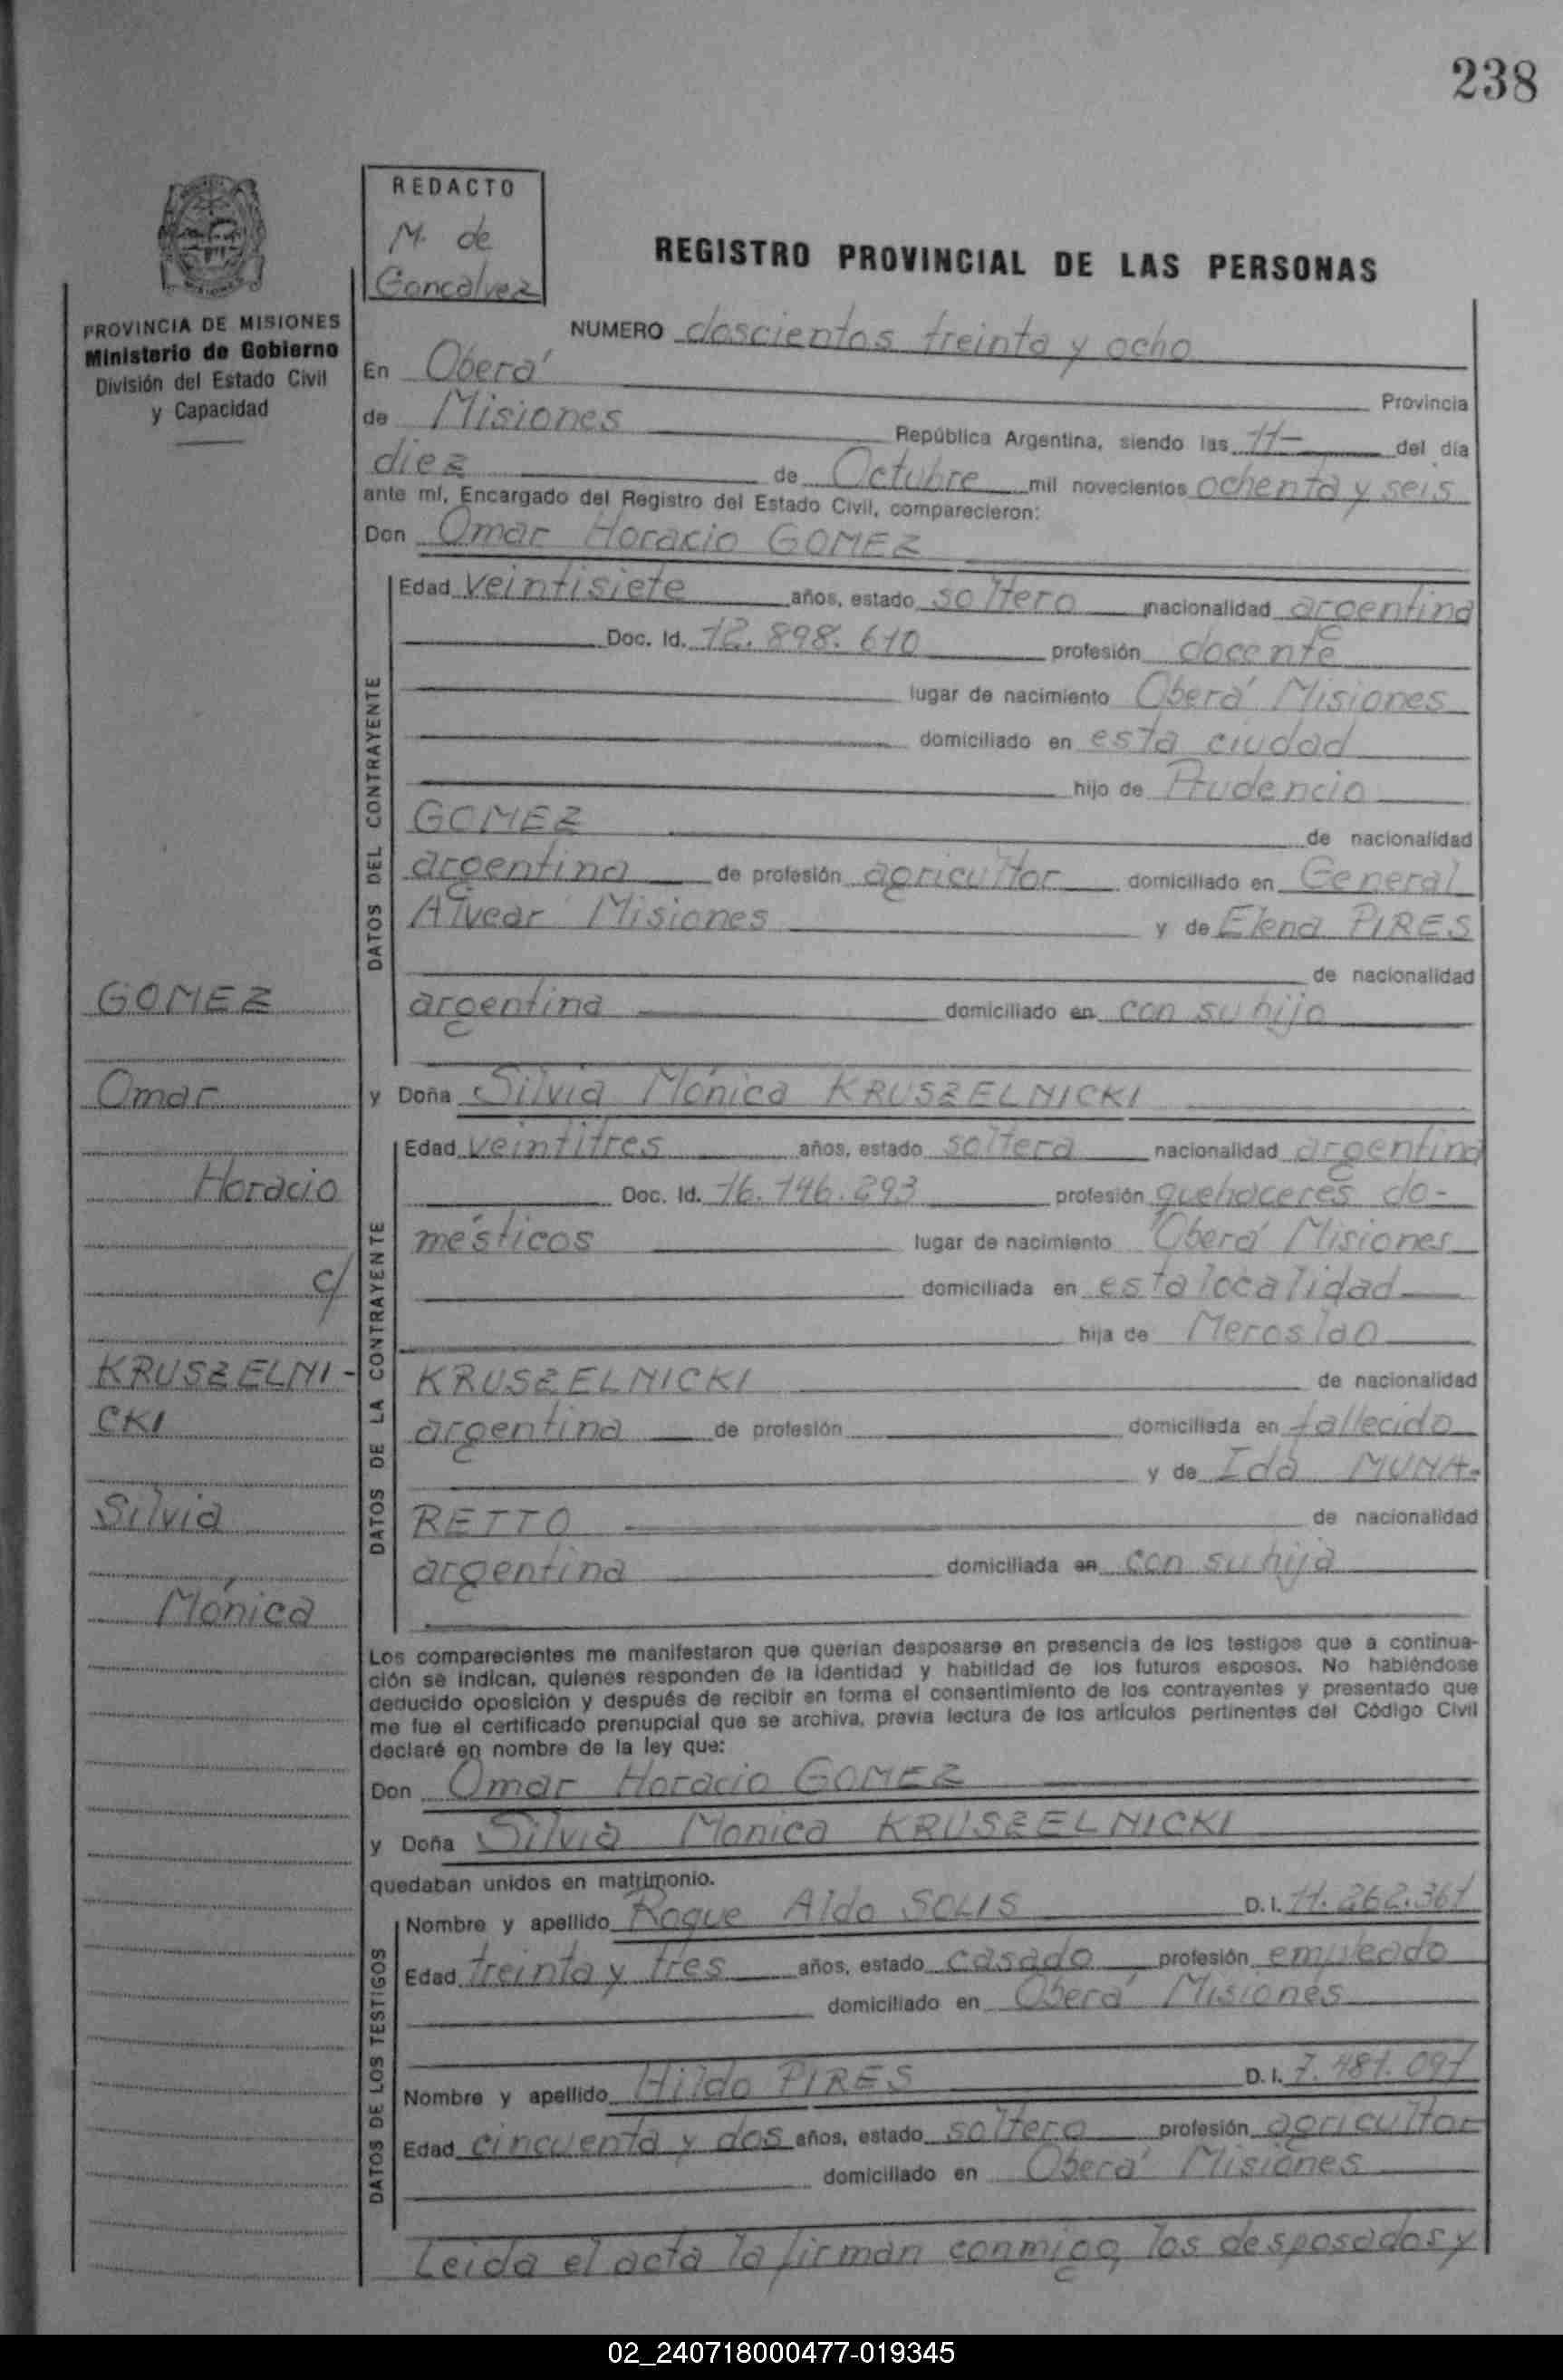 238
REDACTO
M. de
Goncalvez
REGISTRO PROVINCIAL DE LAS PERSONAS
PROVINCIA DE MISIONES
Ministerio de Gobierno
División del Estado Civil
y Capacidad
NUMERO doscientos treinta y ocho
En Oberá Provincia
de Misiones República Argentina, siendo las 11- del día
diez de Octubre mil novecientos ochenta y seis
ante mí, Encargado del Registro del Estado Civil, comparecieron:
Don Omar Horacio GOMEZ
DATOS DEL CONTRAYENTE
Edad veintisiete años, estado soltero nacionalidad argentina
Doc. Id. 12.898.610 profesión docente
lugar de nacimiento Oberá Misiones
domiciliado en esta ciudad
hijo de Prudencio
GOMEZ de nacionalidad
argentina de profesión agricultor domiciliado en General
Alvear Misiones y de Elena PIRES
de nacionalidad
argentina domiciliado en con su hijo
y Doña Silvia Mónica KRUSZELNICKI
DATOS DE LA CONTRAYENTE
Edad veintitres años, estado soltera nacionalidad argentina
Doc. Id. 16.146.293 profesión quehaceres do-
mésticos lugar de nacimiento Oberá Misiones
domiciliada en esta localidad
hija de Meroslao
KRUSZELNICKI de nacionalidad
argentina de profesión domiciliada en fallecido
y de Ida MUNA-
RETTO de nacionalidad
argentina domiciliada en con su hija
GOMEZ
Omar
Horacio
c/
KRUSZELNI-
CKI
Silvia
Mónica
Los comparecientes me manifestaron que querían desposarse en presencia de los testigos que a continua-
ción se indican, quienes responden de la identidad y habilidad de los futuros esposos. No habiéndose
deducido oposición y después de recibir en forma el consentimiento de los contrayentes y presentado que
me fue el certificado prenupcial que se archiva, previa lectura de los artículos pertinentes del Código Civil
declaré en nombre de la ley que:
Don Omar Horacio GOMEZ
y Doña Silvia Monica KRUSZELNICKI
quedaban unidos en matrimonio.
DATOS DE LOS TESTIGOS
Nombre y apellido Roque Aldo SOLIS D. I. 11.262.361
Edad treinta y tres años, estado casado profesión empleado
domiciliado en Oberá Misiones
Nombre y apellido Hildo PIRES D. I. 7.481.091
Edad cincuenta y dos años, estado soltero profesión agricultor
domiciliado en Oberá Misiones
Leida el acta la firman conmigo, los desposados y
02_240718000477-019345